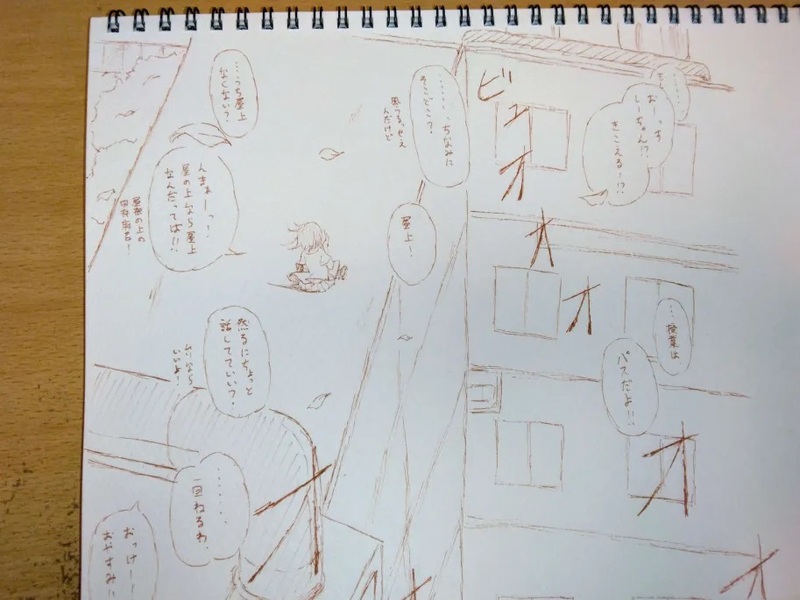 ビュオオオオオオ
お―っす
しーちゃん!?
きこえるー!?
………ちなみに
そこどこ?
風つるせえ
んだけど
屋上!
…授業は
パスだよ!!
…うち屋上
なくない?
んまぁーっ!
屋の上なら屋上
なんだってば!!
屋根の上の
悠るにちょっと
話してていい?
いいよ!
………
一回ねるわ。
おっけー!
おやすみ!!